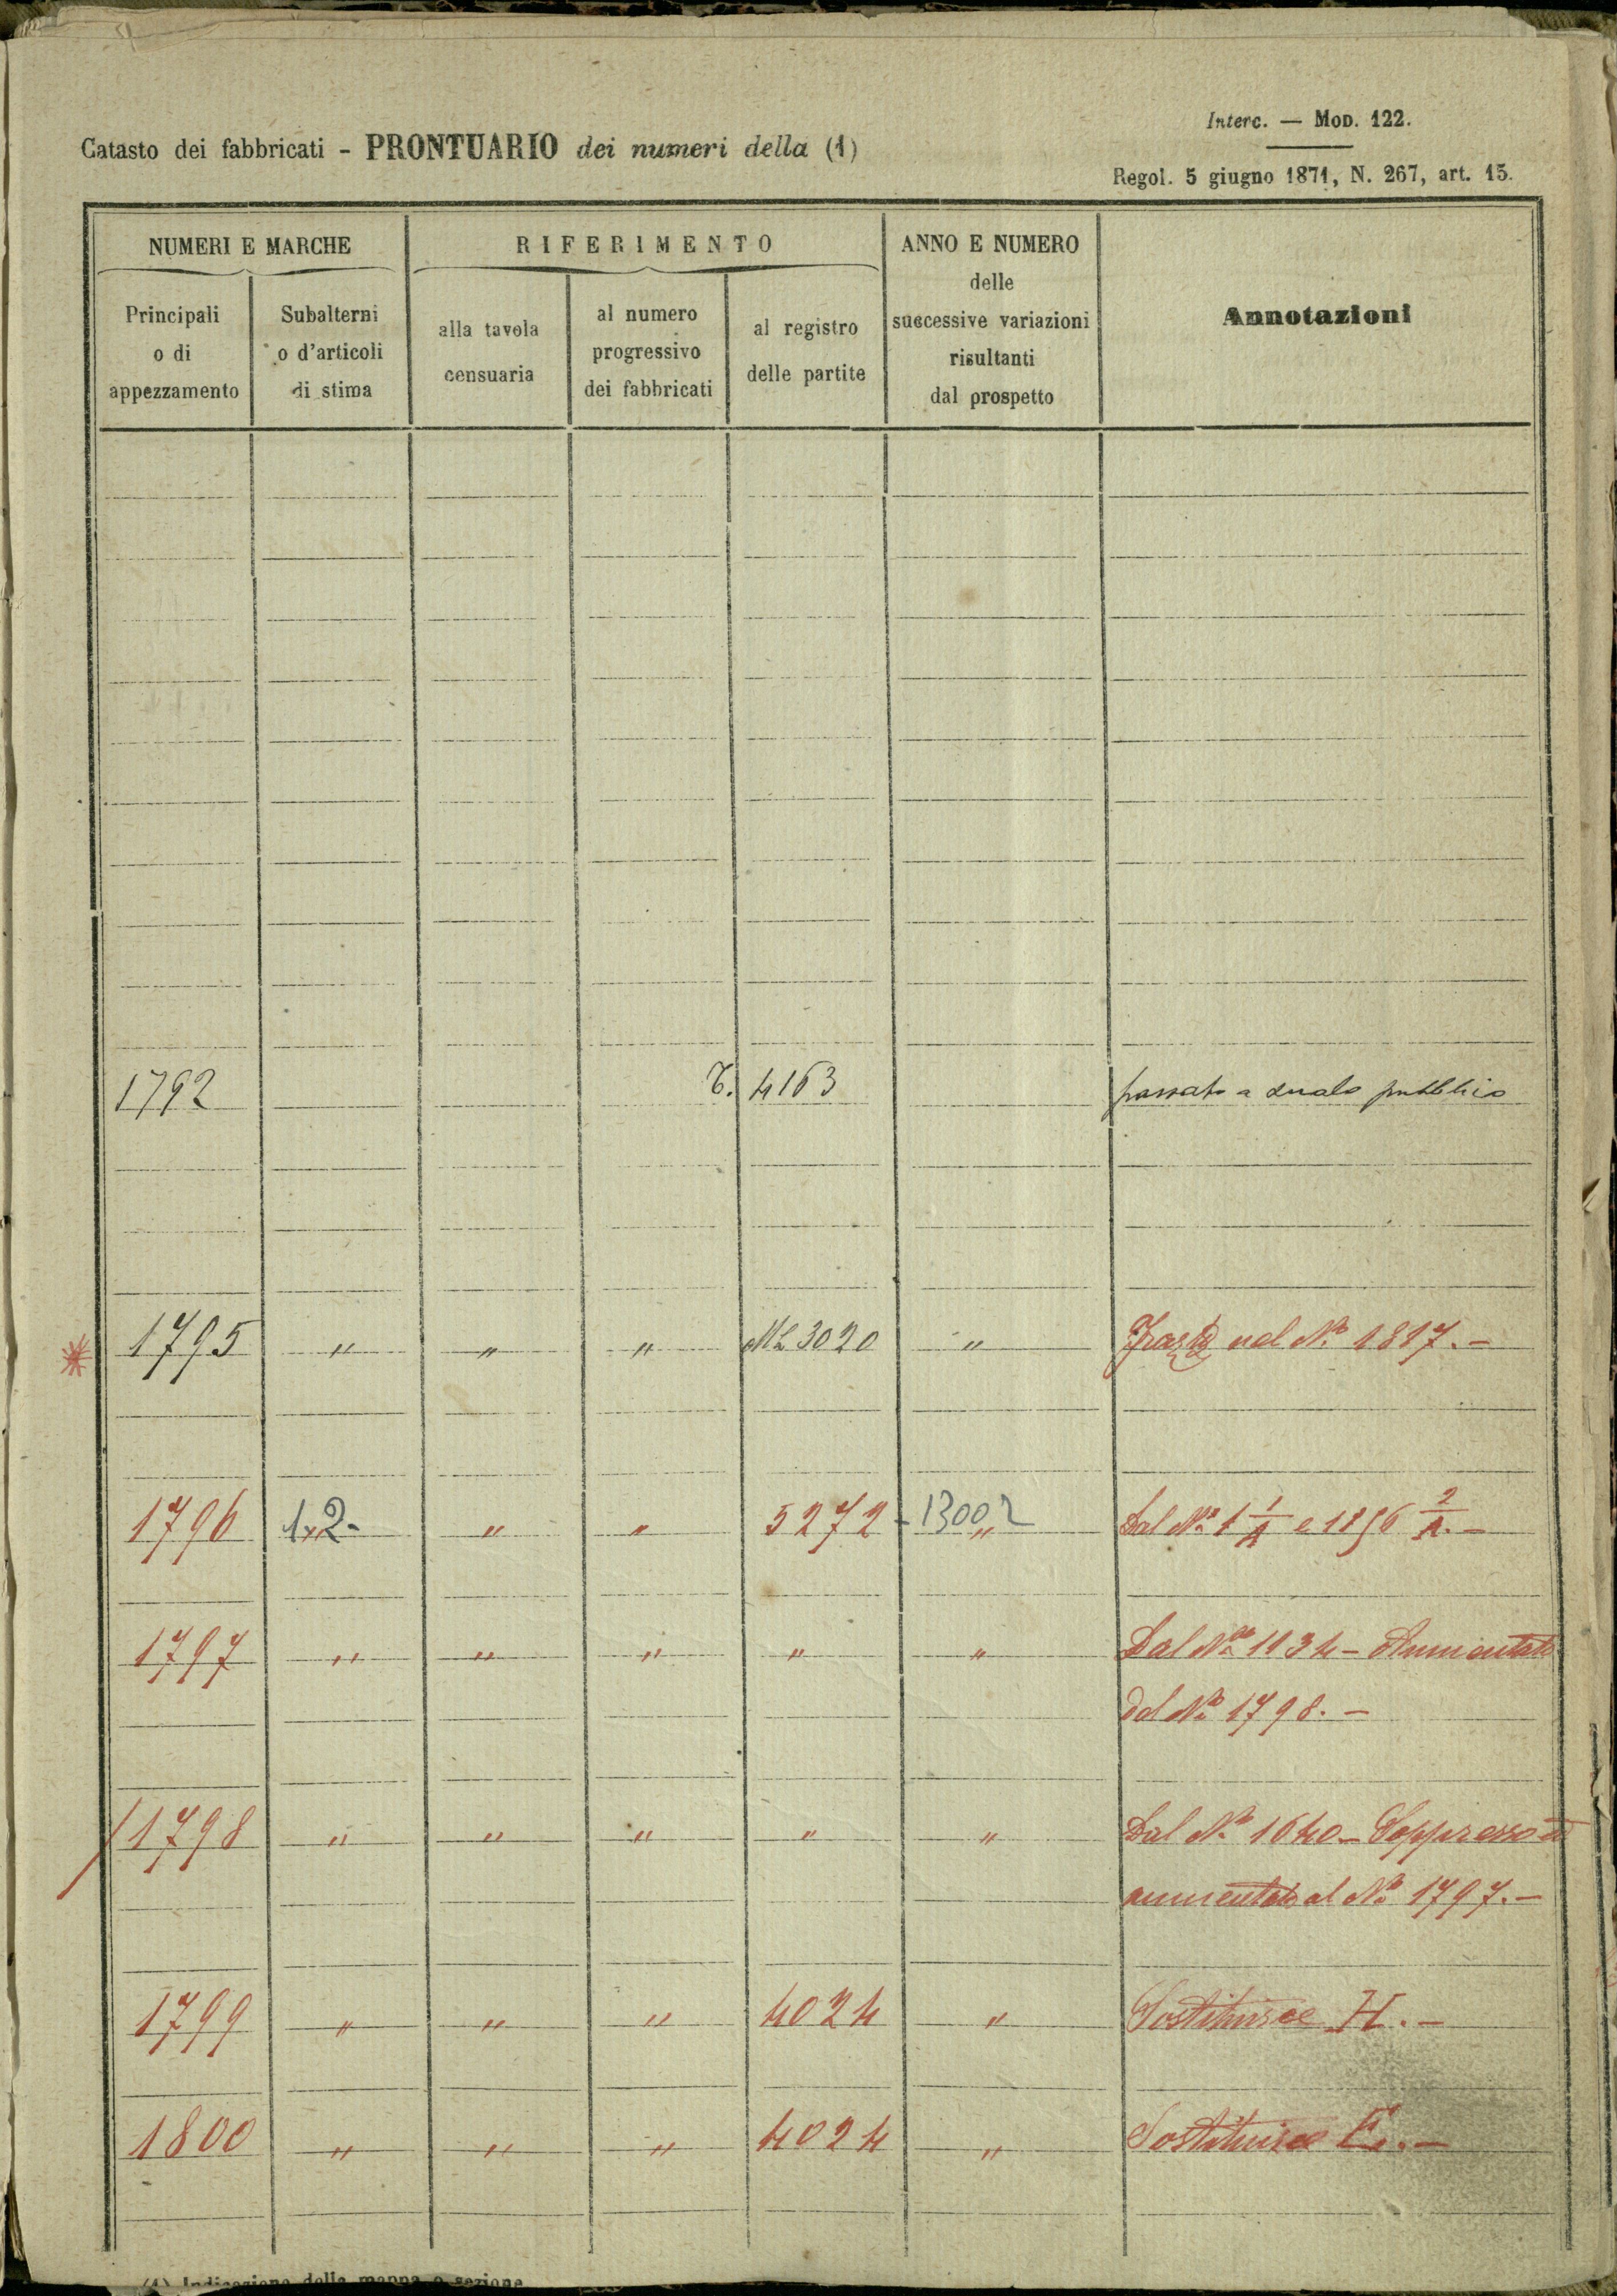 Interc. — Mod. 122.
Catasto dei fabbricati - PRONTUARIO dei numeri della (1)
Regol. 5 giugno 1871, N. 267, art. 15.
NUMERI E MARCHE
RIFERIMENTO
ANNO E NUMERO delle successive variazioni risultanti dal prospetto
Annotazioni
Principali o di appezzamento
Subalterni o d'articoli di stima
alla tavola censuaria
al numero progressivo dei fabbricati
al registro delle partite
1792 T. 4163 passato a suolo pubblico
1795 " " " 3020 " nel N.° 1817.-
1796 1,2- " " 5272 - 13002 " Dal N.° 1 1/A e 1896 2/A.-
1797 " " " " " Dal N.° 1134 - Aumentato
del N.° 1798.-
1798 " " " " " Dal N.° 1640 - Soppresso ed
aumentato al N.° 1797.-
1799 " " " 4024 " Sostituisce H.-
1800 " " " 4024 " Sostituisce E.-
(1) Indicazione della mappa o sezione